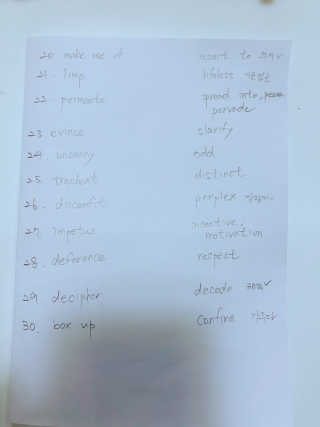 20 make use of resort to
21. limp lifeless
22. permeate spread into,
pervade
23 evince clarify
24. uncanny odd
25. trenchant distinct
26. discomfit perplex
27. impetus incentive,
motivation
28. deference respect
29 decipher decode 해독
30. box up Confine 가두다